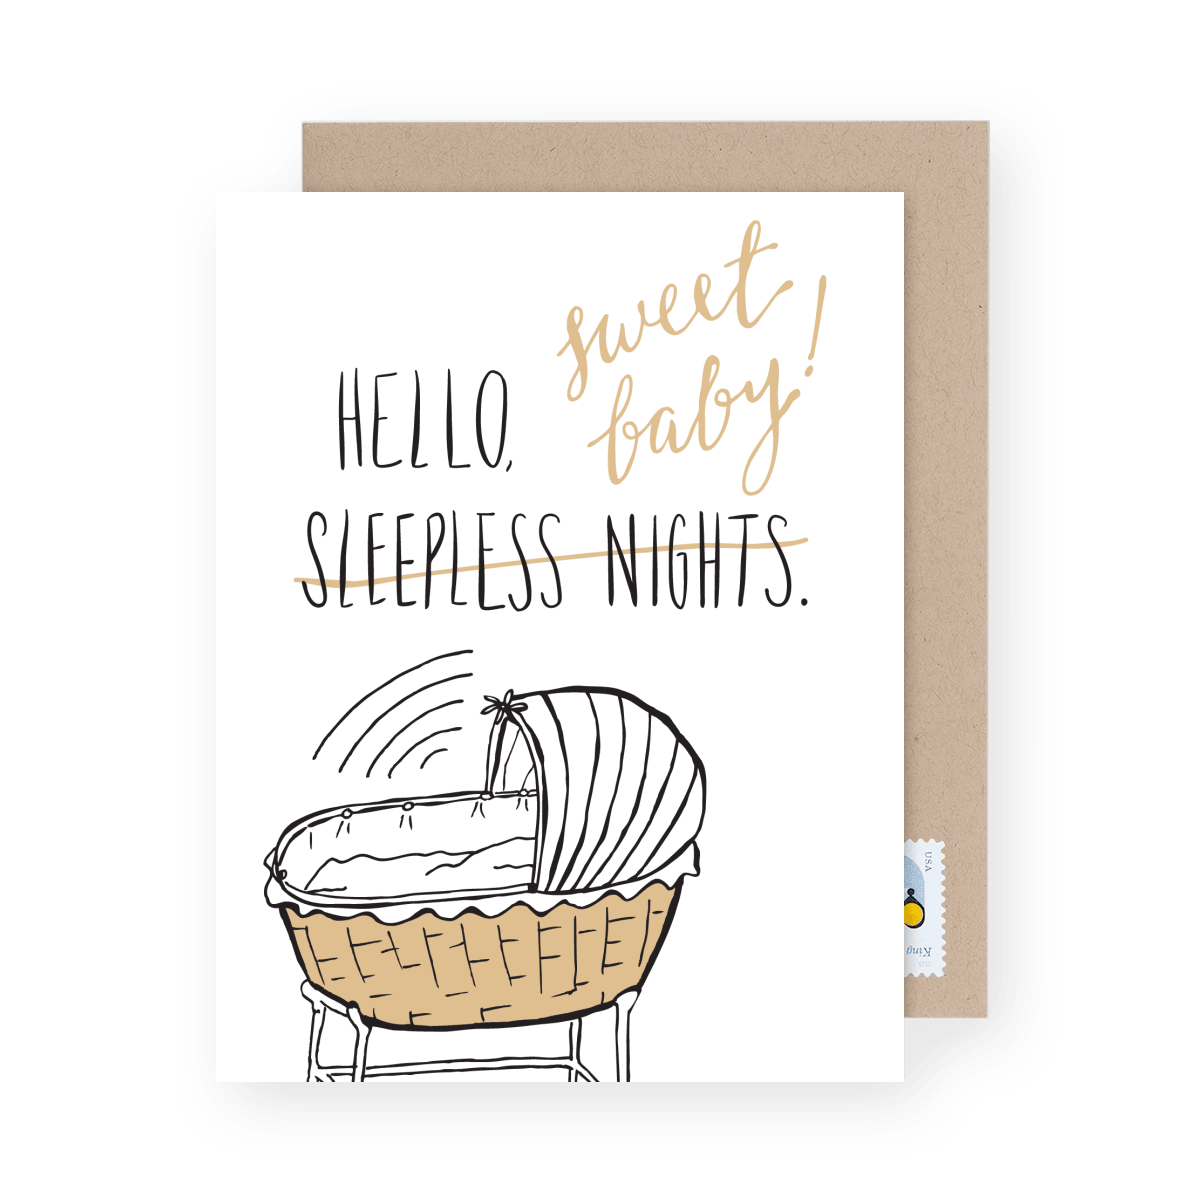 sweet
baby!
HELLO,
SLEEPLESS NIGHTS.
USA
King